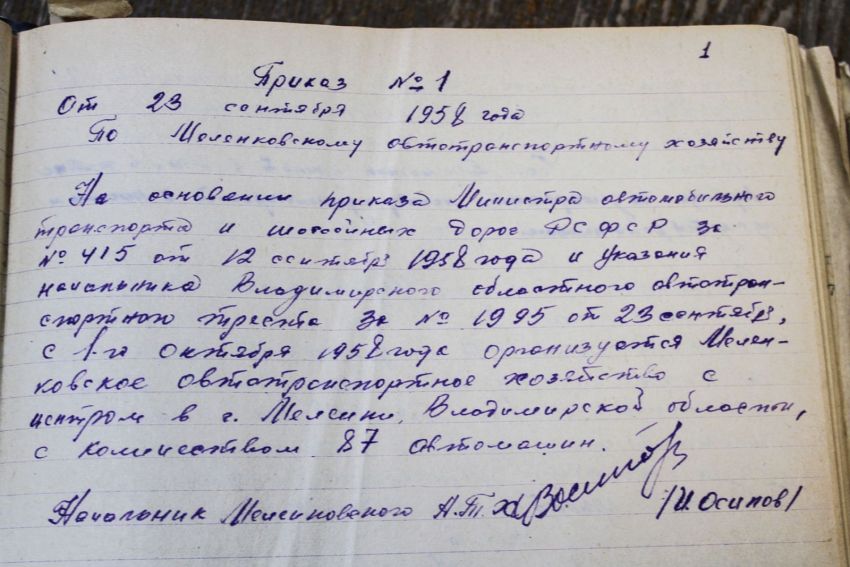 1
Приказ № 1
От 23 сентября 1958 года
По Меленковскому автотранспортному хозяйству
На основании приказа Министра автомобильного
транспорта и шоссейных дорог РСФСР за
№ 415 от 12 сентября 1958 года и указания
начальника Владимирского областного автотран-
спортного треста за № 1995 от 23 сентября,
с 1-го октября 1958 года организуется Мелен-
ковское автотранспортное хозяйство с
центром в г. Меленки, Владимирской области,
с количеством 87 автомашин.
Начальник Меленковского А.Т.Х. /И. Осипов/